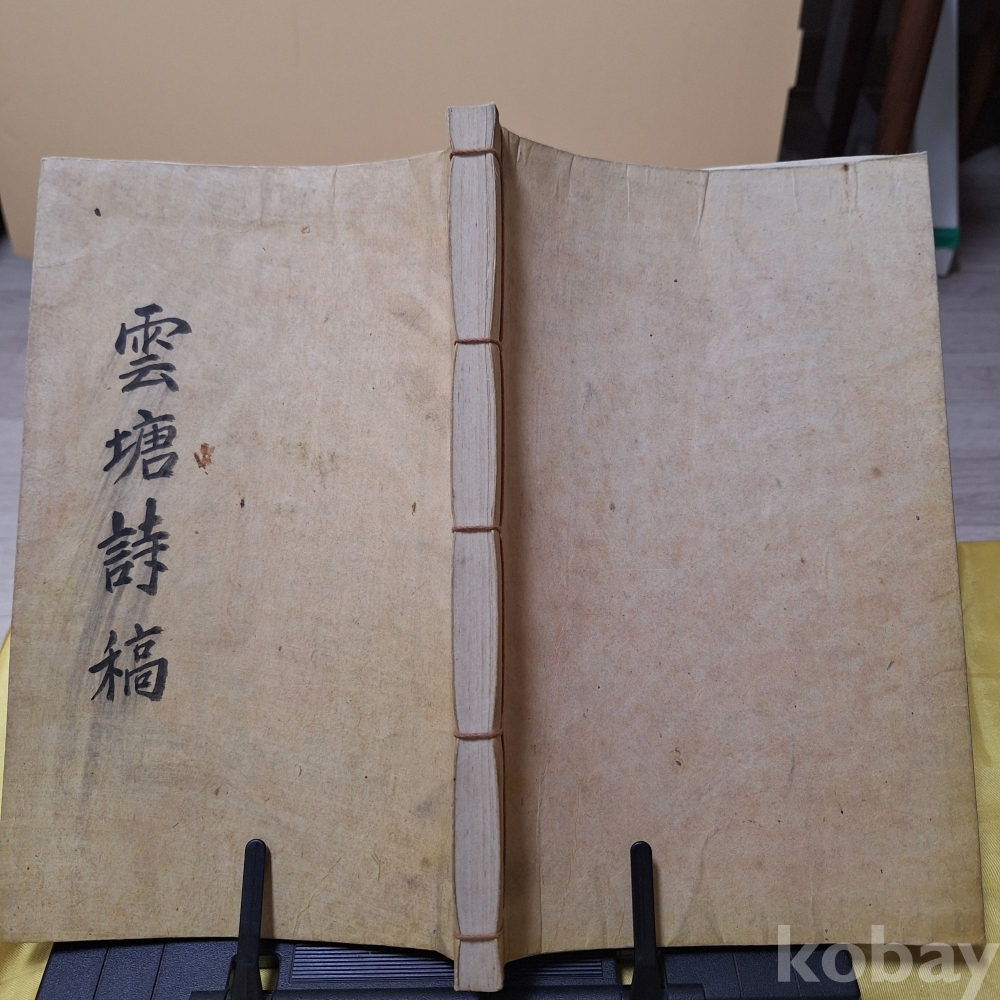 雲塘詩稿
kobay